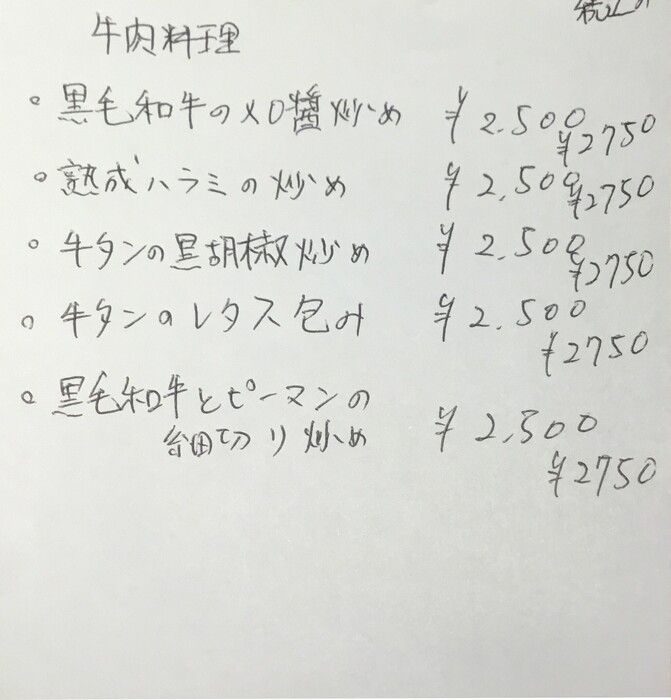 税込み
牛肉料理
• 黒毛和牛のXO醬炒め ¥2.500
¥2750
• 熟成ハラミの炒め ¥2.500
¥2750
• 牛タンの黒胡椒炒め ¥2.500
¥2750
• 牛タンのレタス包み ¥2.500
¥2750
• 黒毛和牛とピーマンの
細切り炒め ¥2.500
¥2750